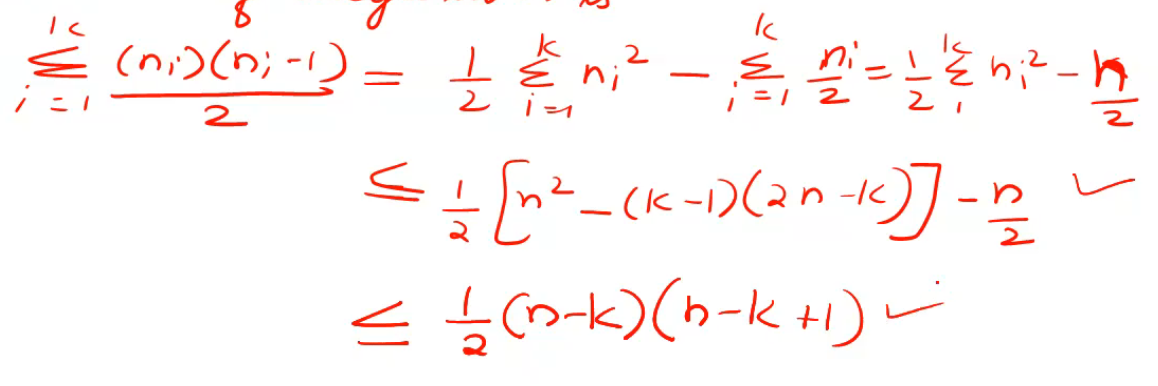 8
is
∑_{i=1}^{k} (n_i)(n_i-1)/2 = 1/2 ∑_{i=1}^{k} n_i² - ∑_{i=1}^{k} n_i/2 = 1/2 ∑_{1}^{k} n_i² - n/2
≤ 1/2 [n² - (k-1)(2n-k)] - n/2 ✓
≤ 1/2 (n-k)(n-k+1) ✓